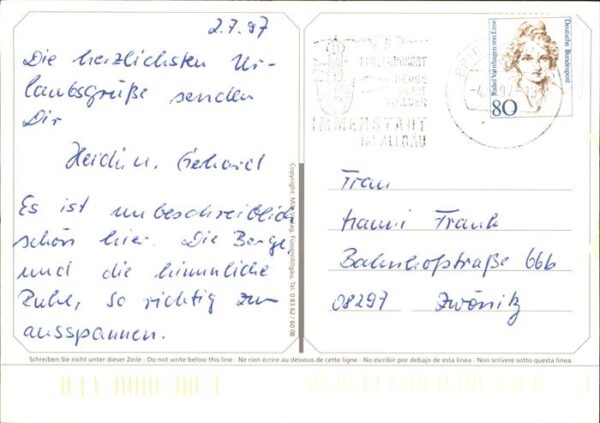 2.7.97
Die herzlichsten Ur-
laubsgrüße senden
Dir
Heidi u. Gerhard
Es ist unbeschreiblich
schön hier. Die Berge
und die himmliche
Ruhe, so richtig zum
ausspannen.
Deutsche Bundespost
Rahel Varnhagen von Ense
80
IMMENSTADT
IM ALLGÄU
Frau
Hanni Frank
Bahnhofstraße 66b
08297 Zwönitz
Schreiben Sie nicht unter dieser Zeile - Do not write below this line - Ne rien écrire au dessous de cette ligne - No escribir por debajo de esta linea - Non scrivere sotto questa linea.